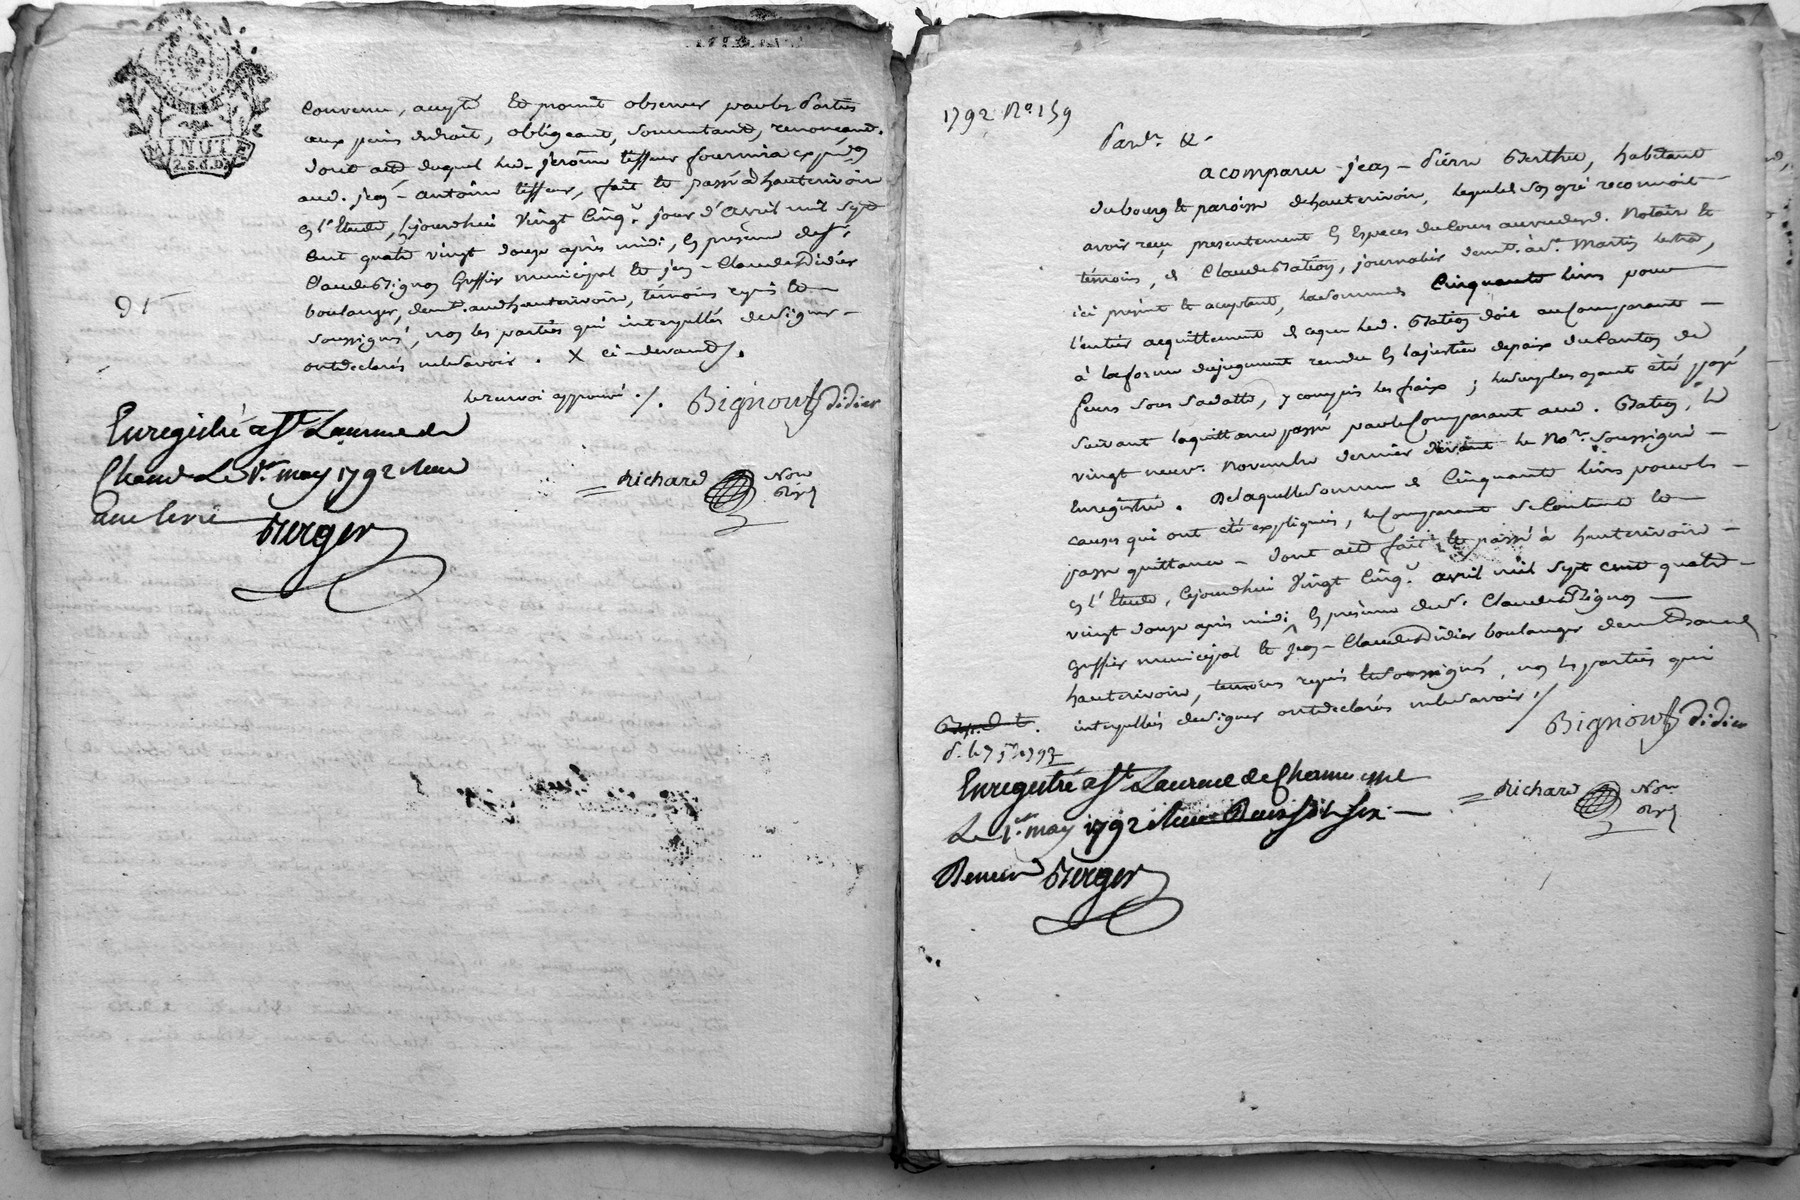 MINUT
2.s.6.D
convenu, accepté et promit observer par les parties
aux peines de droit, obligeant, soumettant, renonceant.
dont acte duquel led. jerôme tisseur fournira expédon
aud. jean-antoine tisseur, fait et passé à hauterivoire
en l'Etude, cejourdhui Vingt Cinq jour d'avril mil sept
Cent quatre vingt douze après midi, en présence de sr
Claude Bignon greffier municipal et jean-Claude Didier
boulanger, demt. aud hauterivoire, témoins requis et
soussignés, non les parties qui interpellés de signer
ont declarés ne le savoir. X ci-devant
le renvoi approuvé
Bignon Didier
91
Enregistré a St Laurent de
Chamt Le 1er may 1792 Recu
une livre
Berger
Richard Nore
1792 No. 159
Pardt. &.
a comparu jean-Pierre Berthet, habitant
du bourg et paroisse de hauterivoire, lequel de son gré reconnoit
avoir reçu presentement en Especes du Cours au vu desd. Notaire et
témoins, de Claude Bation, journalier demt. à St. Martin lestra,
ici présent et acceptant, la somme de Cinquante livres pour
l'entier acquittement de ce que led. Bation doit au Comparant
à la forme du jugement rendu en la justice de paix du Canton de
feurs sous sa datte, y compris les fraix; le surplus ayant été payé
suivant la quittance passée par le Comparant aud. Bation, le
vingt neuf Novembre dernier devant le Nore. soussigné
Enregistrée. De laquelle somme de Cinquante livres pour les
causes qui ont été expliquées, le Comparant se Contente et
passe quittance - dont acte fait et passé à hauterivoire
en l'Etude, cejourdhui Vingt Cinq avril mil sept cent quatre
vingt douze après midi, en présence de sr. Claude Bignon
greffier municipal et jean-Claude Didier boulanger demt. aud
hauterivoire, temoins requis et soussignés, non les parties qui
interpellés de signer ont declarés ne le savoir
Bignon Didier
Enregistré a St Laurent de Chamousset
Le 1er may 1792 Recu Quinze sols six
Deniers Berger
Richard Nore